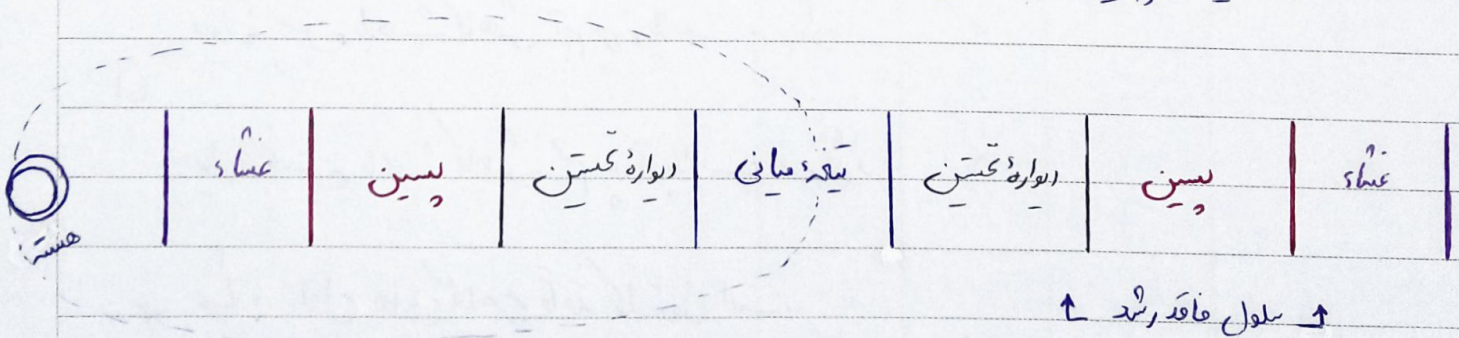 غشاء پسین دیوارهٔ نخستین تیغهٔ میانی دیوارهٔ نخستین پسین غشاء
هسته
سلول فاقد رشد